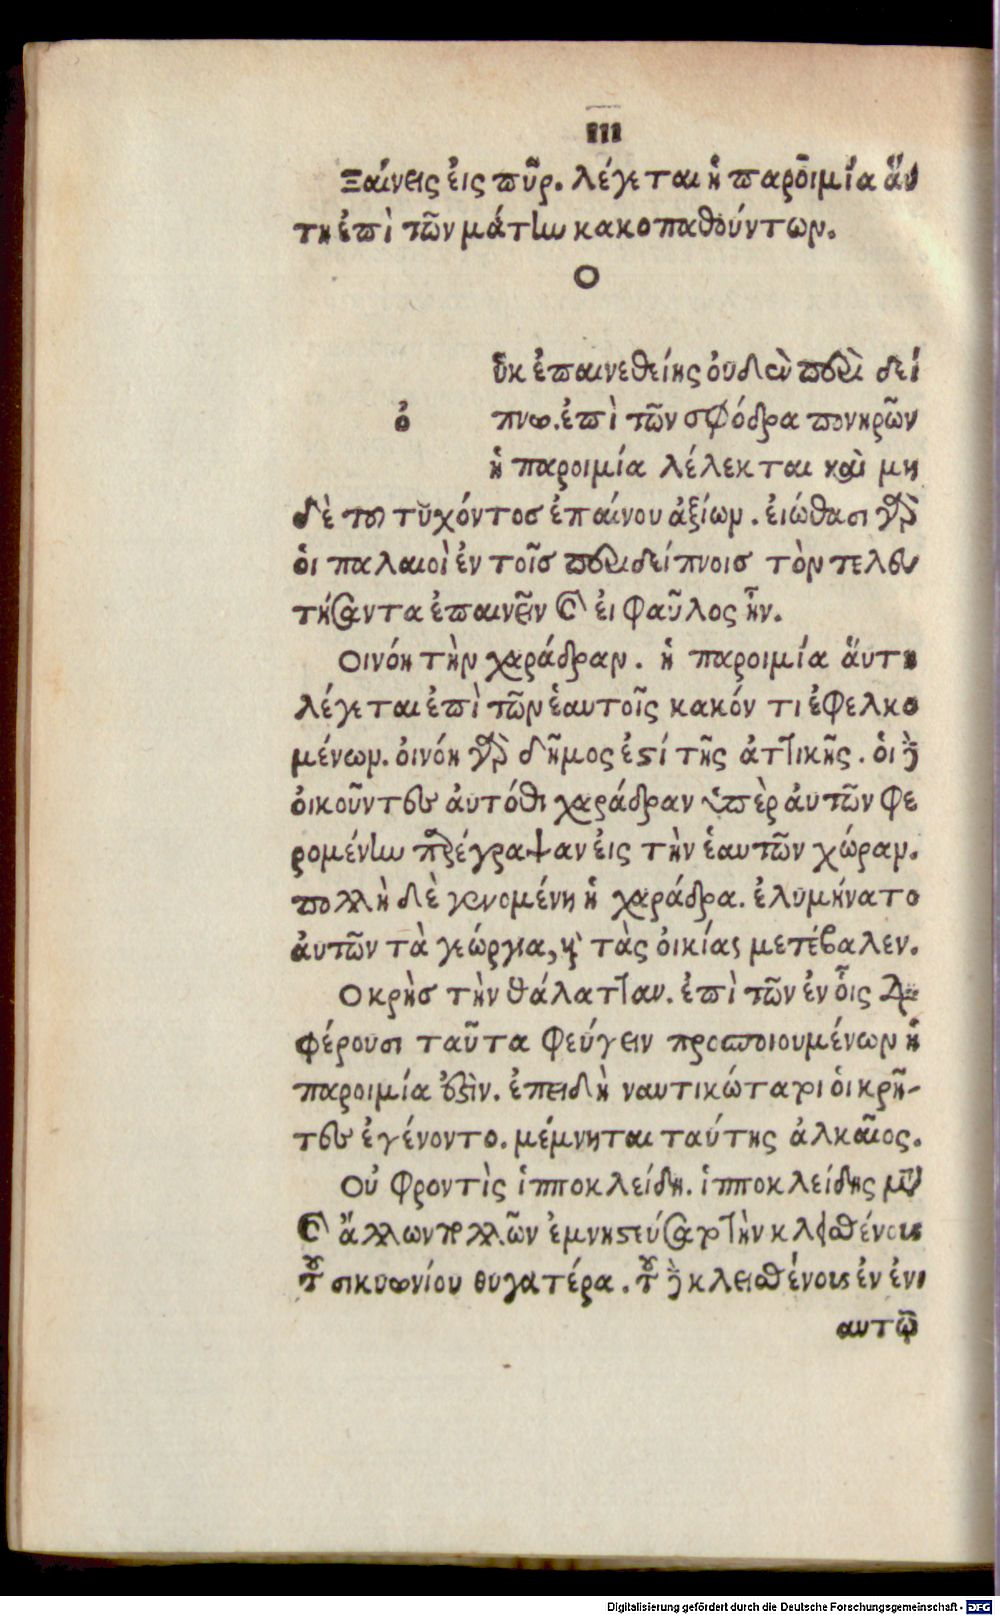 III
Ξαίνεις εἰς πῦρ. λέγεται ἡ παροιμία ἅυ
τη ἐπὶ τῶν μάτην κακοπαθούντων.
Ο
ὐκ ἐπαινεθείης ὀυδ' ἐν περὶ δεί
ὀ πνω. ἐπὶ τῶν σφόδρα πονηρῶν
ἡ παροιμία λέλεκται καὶ μη
δὲ τοῦ τυχόντοσ ἐπαίνου ἀξίων. ἐιώθασι γὰρ
ὁι παλαιοὶ ἐν τοῖσ περιδείπνοισ τὸν τελευ
τήσαντα ἐπαινεῖν καὶ ἐι φαῦλος ἦν.
Οινόη τὴν χαράδραν. ἡ παροιμία ἅυτη
λέγεται ἐπὶ τῶν ἑαυτοῖς κακόν τι ἐφελκο
μένων. ὀινόη γὰρ δῆμος ἐστί τῆς ἀττικῆς. ὁι δὲ
ὀικοῦντες ἀυτόθι χαράδραν ὑπὲρ ἀυτῶν φε
ρομένην παρέγραψαν εἰς τὴν ἑαυτῶν χώραν.
πολλὴ δὲ γενομένη ἡ χαράδρα. ἐλυμήνατο
ἀυτῶν τὰ γεώργια, καὶ τὰς ὀικίας μετέβαλεν.
Ο κρὴσ τὴν θάλατταν. ἐπὶ τῶν ἐν οἷς δια
φέρουσι ταῦτα φεύγειν προσποιουμένων ἡ
παροιμία ἐστὶν. ἐπειδὴ ναυτικώτατοι ὁι κρῆ-
τες ἐγένοντο. μέμνηται ταύτης ἀλκαῖος.
Οὐ φροντὶς ἱπποκλείδη. ἱπποκλείδης μετὰ
καὶ ἄλλων πολλῶν ἐμνηστεύσατο τὴν κλεισθένους
τοῦ σικυωνίου θυγατέρα. τοῦ δὲ κλεισθένους ἐν ἐνι
αυτῷ
Digitalisierung gefördert durch die Deutsche Forschungsgemeinschaft - DFG